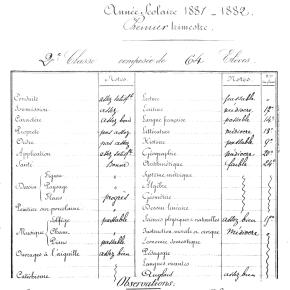 Année Scolaire 1881 - 1882.
Premier trimestre.
2e Classe composée de 64 Élèves.
Notes Notes
Conduite assez satisf. Lecture passable
Soumission assez Écriture médiocre 12e
Caractère assez bon Langue française passable 14e
Propreté pas assez Littérature médiocre 13e
Ordre pas assez Histoire passable 9e
Application assez satisf. Géographie médiocre 20e
Santé bonne Arithmétique faible 24e
Figure Système métrique
Dessin Paysage Algèbre
Fleurs progrès Géométrie
Peinture sur porcelaine Dessin linéaire
Solfège passable Sciences physiques et naturelles assez bien
Musique Chant Instruction morale et civique médiocre
Piano passable Économie domestique
Ouvrages à l'aiguille assez bien Pédagogie
Langues vivantes
Catéchisme Anglais assez bien
Observations.